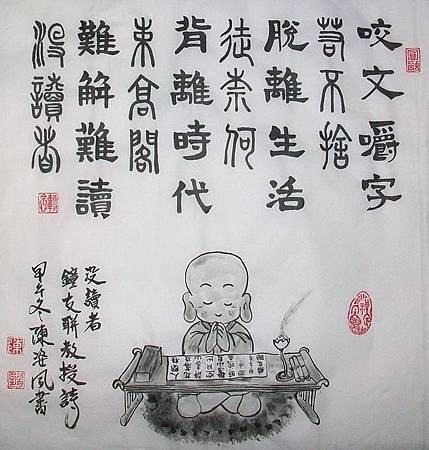 咬文嚼字
苦不捨
脫離生活
徒奈何
背離時代
束高閣
難解難讀
沒讀者
沒讀者
鐘友聯教授詩
甲午冬陳風書